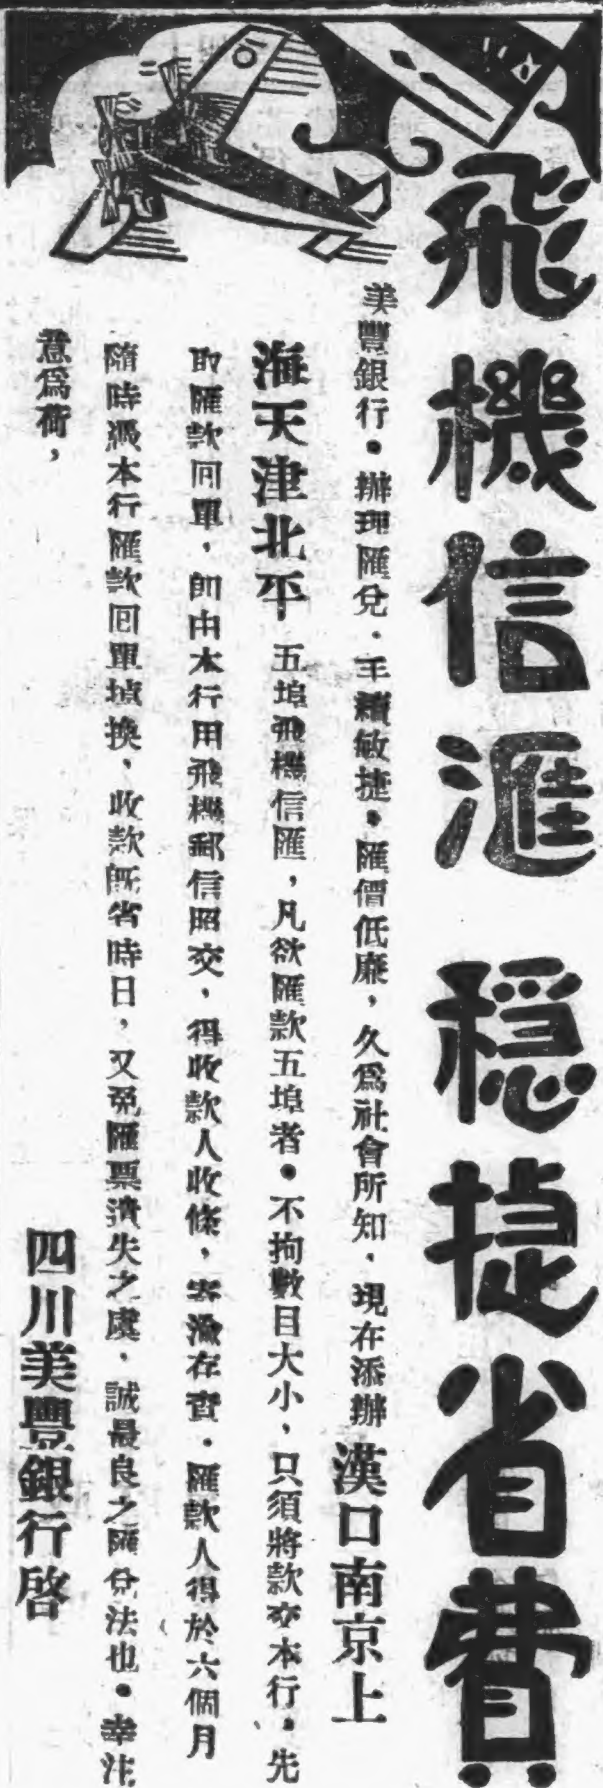 飛機信滙 穩捷省費
美豐銀行．辦理匯兌．手續敏捷．匯價低廉，久爲社會所知．現在添辦漢口南京上
海天津北平五埠飛機信匯，凡欲匯款五埠者．不拘數目大小，只須將款交本行，先
取匯款回單，卽由本行用飛機郵信照交，得收款人收條，寄渝存查．匯款人得於六個月
隨時憑本行匯款回單掉換，收款旣省時日，又免匯票遺失之虞，誠最良之匯兌法也．幸注
意爲荷，
四川美豐銀行啓